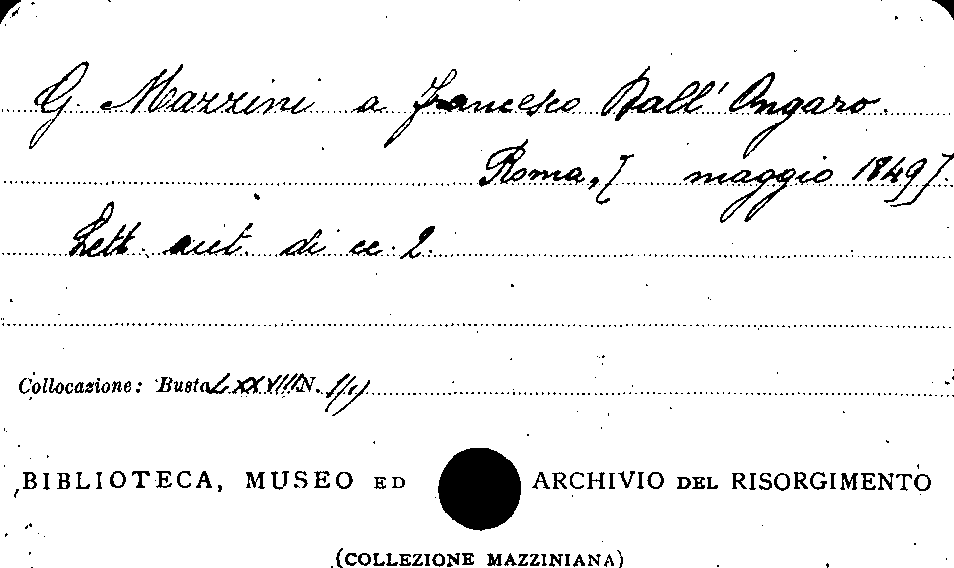 G. Mazzini a Francesco Dall' Ongaro.
Roma, [ maggio 1849].
Lett. aut. di cc. 2.
Collocazione: Busta LXXVIIII N.
BIBLIOTECA, MUSEO ED ARCHIVIO DEL RISORGIMENTO
(COLLEZIONE MAZZINIANA)